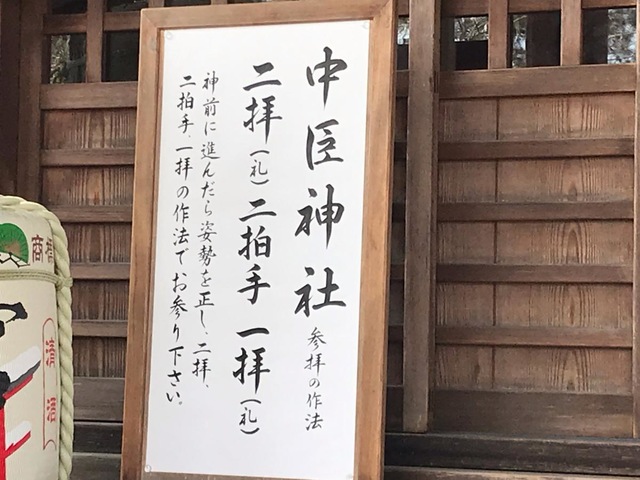 中臣神社 参拝の作法
二拝(礼)二拍手 一拝(礼)
神前に進んだら姿勢を正し、二拝、
二拍手、一拝の作法でお参り下さい。
清酒